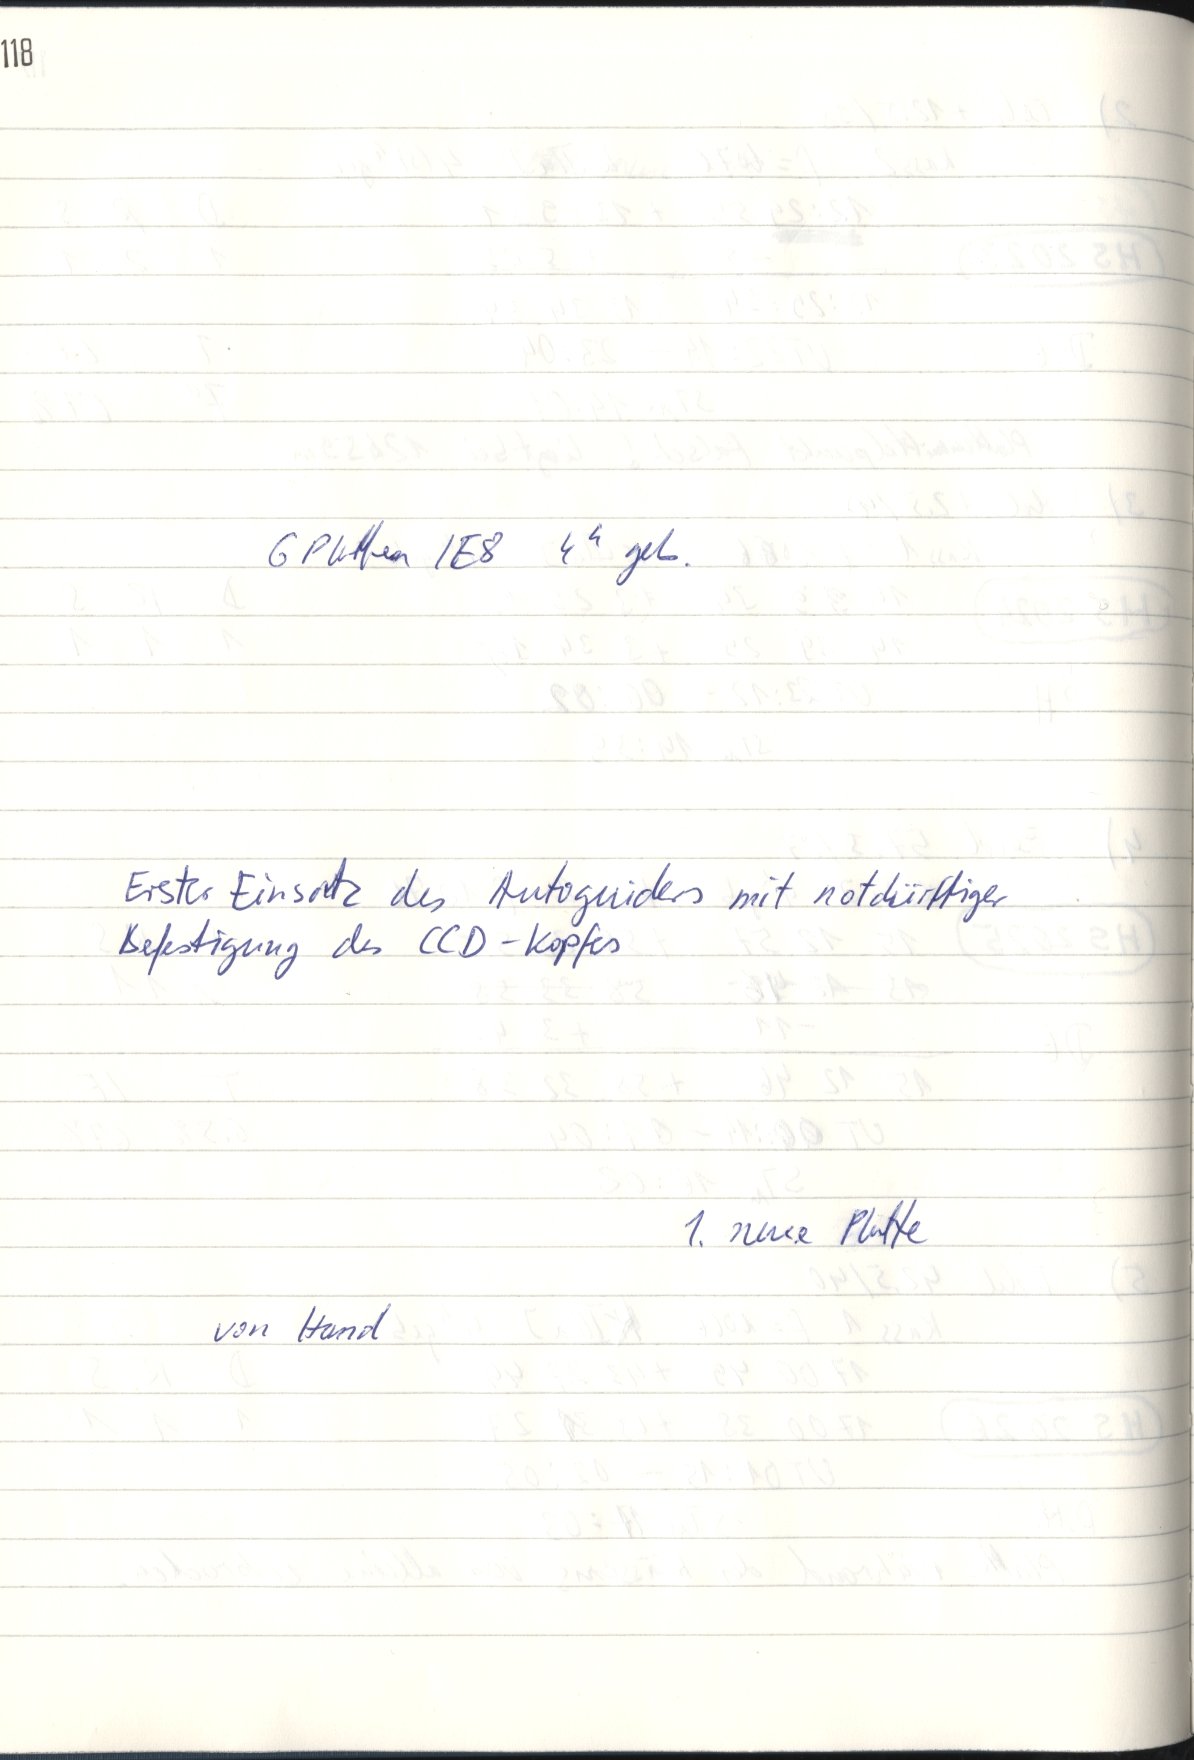 118
6 Platten IE8 4h geb.
Erster Einsatz des Autoguiders mit notdürftiger
Befestigung des CCD-Kopfes
1. neue Platte
von Hand